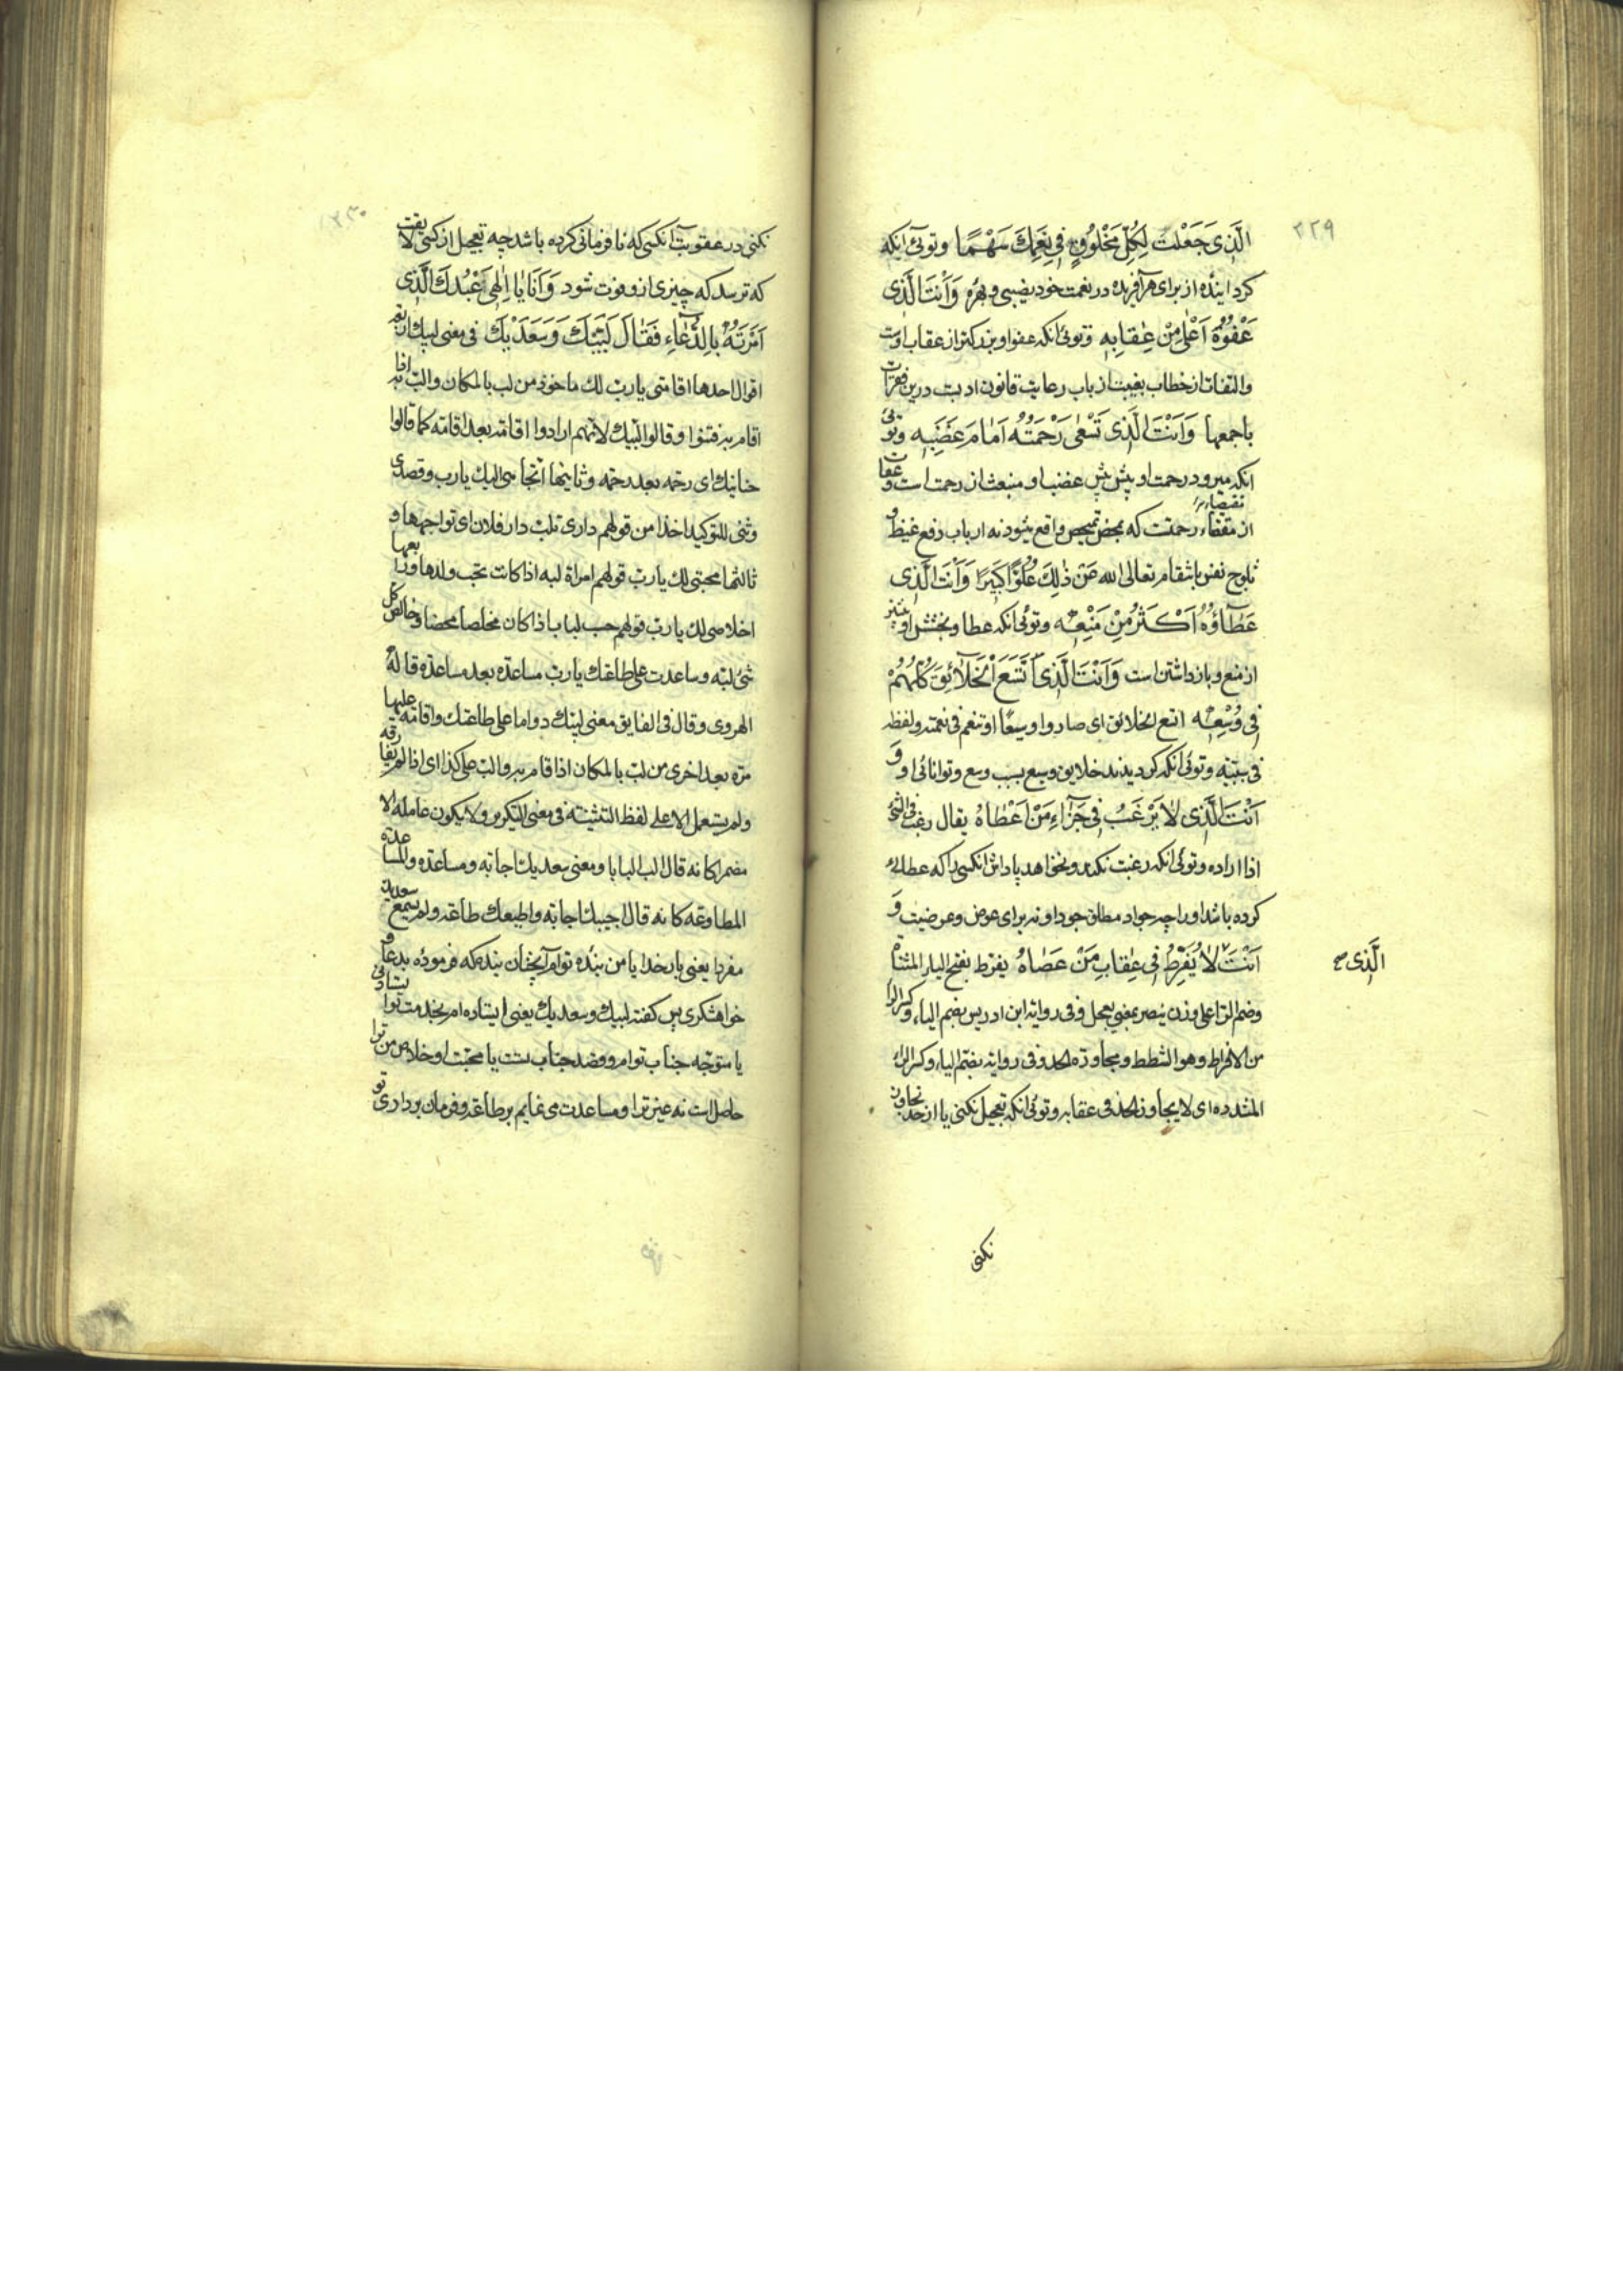 ٢٢٩
الَّذِي جَعَلْتَ لِكُلِّ مَخْلُوقٍ فِي نِعَمِكَ سَهْمًا وتوئی آنکه
کردانیدهٔ از برای هر آفریده در نعمت خود نصیبی و بهره وَأَنْتَ الَّذِي
عَفْوُهُ أَعْلَى مِنْ عِقَابِهِ وتوئی آنکه عفو او بزرکتر از عقاب اوست
والتفات از خطاب بغیبت از باب رعایت قانون ادبست درین فقرات
باجمعها وَأَنْتَ الَّذِي تَسْعَى رَحْمَتُهُ أَمَامَ غَضَبِهِ وتوئی
آنکه میرود رحمت او پیش پیش غضب او منبعث از رحمت است و عقاب
از مقتضاء رحمتست که بمحض تمحیص واقع میشود نه از باب دفع غیظ و
ثلوج نفس بانتقام تعالی الله عَنْ ذٰلِكَ عُلُوًّا كَبِيرًا وَأَنْتَ الَّذِي
عَطَاؤُهُ أَكْثَرُ مِنْ مَنْعِهِ وتوئی آنکه عطا و بخشش او بیشتر
از منع و باز داشتن است وَأَنْتَ الَّذِي اتَّسَعَ الْخَلَائِقُ كُلُّهُمْ
فِي وُسْعِهِ اتسع الخلائق ای صاروا وسیعًا او تنعم فی نعمته ولفظه
فی سببیّه وتوئی آنکه کردیدند خلایق وسیع بسبب وسع و توانائی او وَ
أَنْتَ الَّذِي لَا يَرْغَبُ فِي جَزَاءِ مَنْ أَعْطَاهُ یقال رغب فی الشئ
اذا اراده وتوئی آنکه رغبت نکند و نخواهد پاداش آنکسی را که عطائی
کرده باشد او را چه جواد مطلق جود او نه برای عوض و عرضیت وَ
أَنْتَ لَا يُفْرِطُ فِي عِقَابِ مَنْ عَصَاهُ یفرط بفتح الیاء المثناة
الَّذِی صح
وضم الرّا علی وزن ینصر بمعنی یعجل وفی روایة ابن ادریس بضم الیاء وکسر الرا
من الافراط وهو الشطط ومجاوزة الحد وفی روایة بضم الیاء وکسر الراء
المشدده ای لا یجاوز الحد فی عقابه وتوئی آنکه تعجیل نکنی یا از حد تجاوز
نکنی
٢٣٠
نکنی در عقوبت آنکسی که نافرمانی کرده باشد چه تعجیل از کسی لایقست
که ترسد که چیزی از و فوت شود وَأَنَا يَا إِلٰهِي عَبْدُكَ الَّذِي
أَمَرْتَهُ بِالدُّعَاءِ فَقَالَ لَبَّيْكَ وَسَعْدَيْكَ فی معنی لبیك اربعة
اقوال احدها اقامتی یا رب لك ماخوذ من لب بالمکان والب به اذا
اقام به فثنوا وقالوا لبّیك لانهم ارادوا اقامة بعد اقامة کما قالوا
حنانیك ای رحمة بعد رحمة وثانیها اتجاهی الیك یا رب وقصدی
وثنی للتوکید اخذا من قولهم داری تلب دار فلان ای تواجهها و
ثالثها محبتی لك یا رب قولهم امراة لبه اذا کانت تحب ولدها ورابعها
اخلاصی لك یا رب قولهم حسب لباب اذا کان مخلصا محضا وخالص کل
شئ لبّه وساعدت علی طاعتك یا رب مساعدة بعد مساعدة قاله
الهروی وقال فی الفایق معنی لبیك دواما علی طاعتك واقامة علیها
مرّه بعد اخری من لب بالمکان اذا قام به والب علی کذا ای اذا لم یفارقه
ولم یستعمل الا علی لفظ التثنیة فی معنی التکریر ولا یکون عامله الا
مضمرا کانه قال الب البابا ومعنی سعدیك اجابة ومساعدة والمساعدة
المطاوعة کانه قال اجیبك اجابة واطیعك طاعة ولم یسمع سعدیك
مفردا یعنی بار خدایا من بندهٔ توام آنچنان بنده‌که فرمودهٔ بدعا و
خواهشکری پس کفته لبیك وسعدیك یعنی ایستاده‌ام بخدمت توا
یا متوجّه جناب توام وقصد جناب تست یا محبّت او خلاص من ترا
حاصل است نه غیر ترا و مساعدت می‌نمایم بر طاعة و فرمان برداری تو